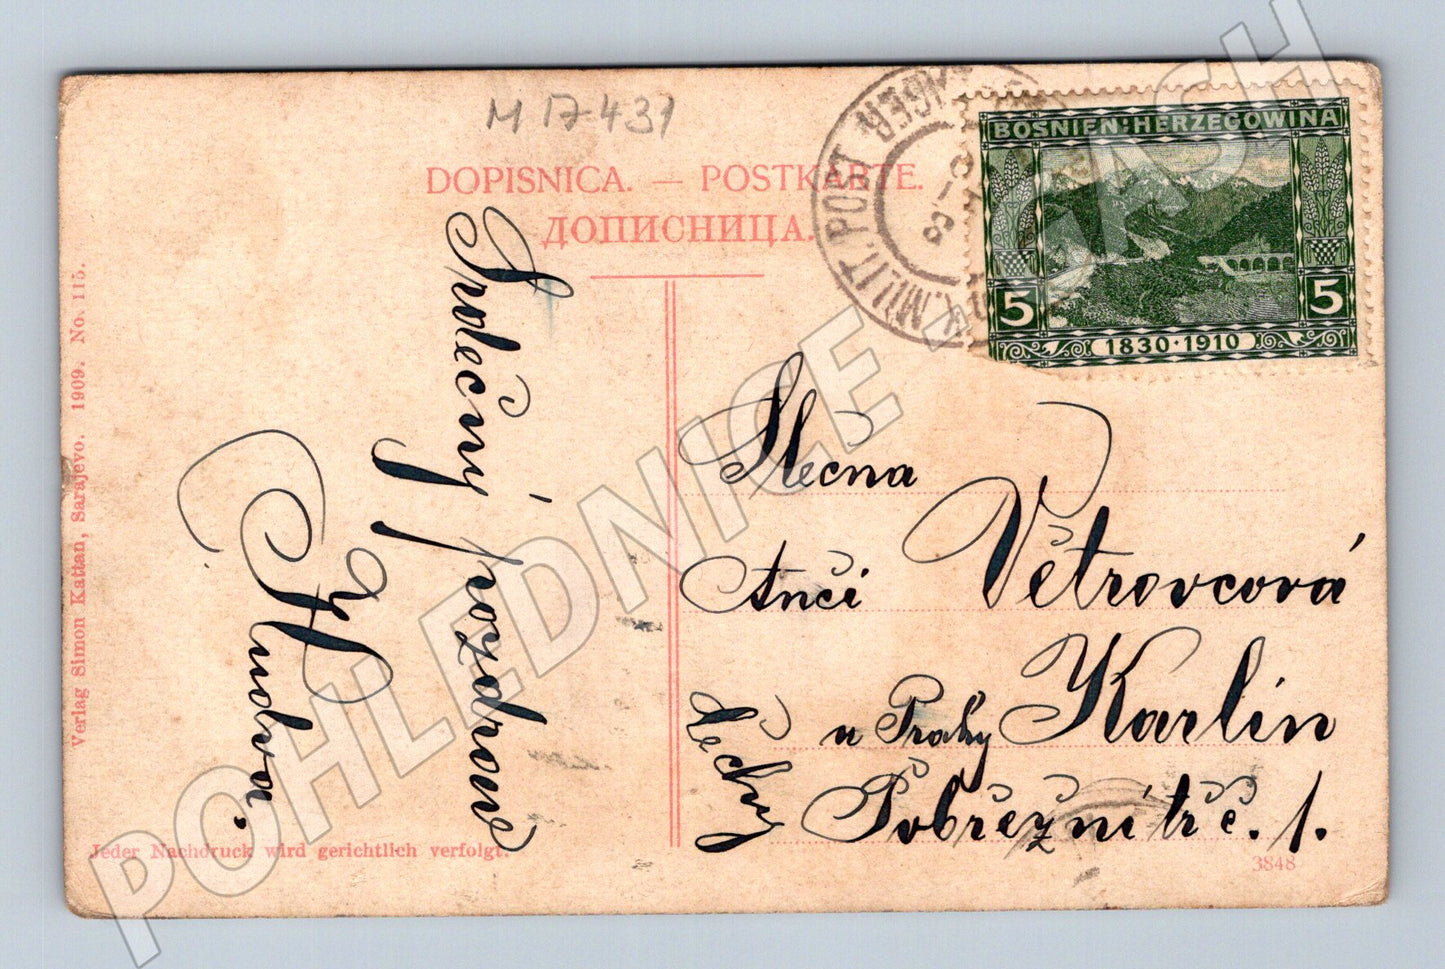 M 17-431
DOPISNICA. — POSTKARTE.
ДОПИСНИЦА.
MILIT. POST
BOSNIEN·HERZEGOWINA
5
5
1830·1910
Verlag Simon Kattan, Sarajevo. 1909. No. 115.
Srdečný pozdrav
Slečna
Anči Větrovcová
Karlín
u Prahy
Čechy
Pobřežní tř č. 1.
Jeder Nachdruck wird gerichtlich verfolgt.
3848
POHLEDNICE - CASH